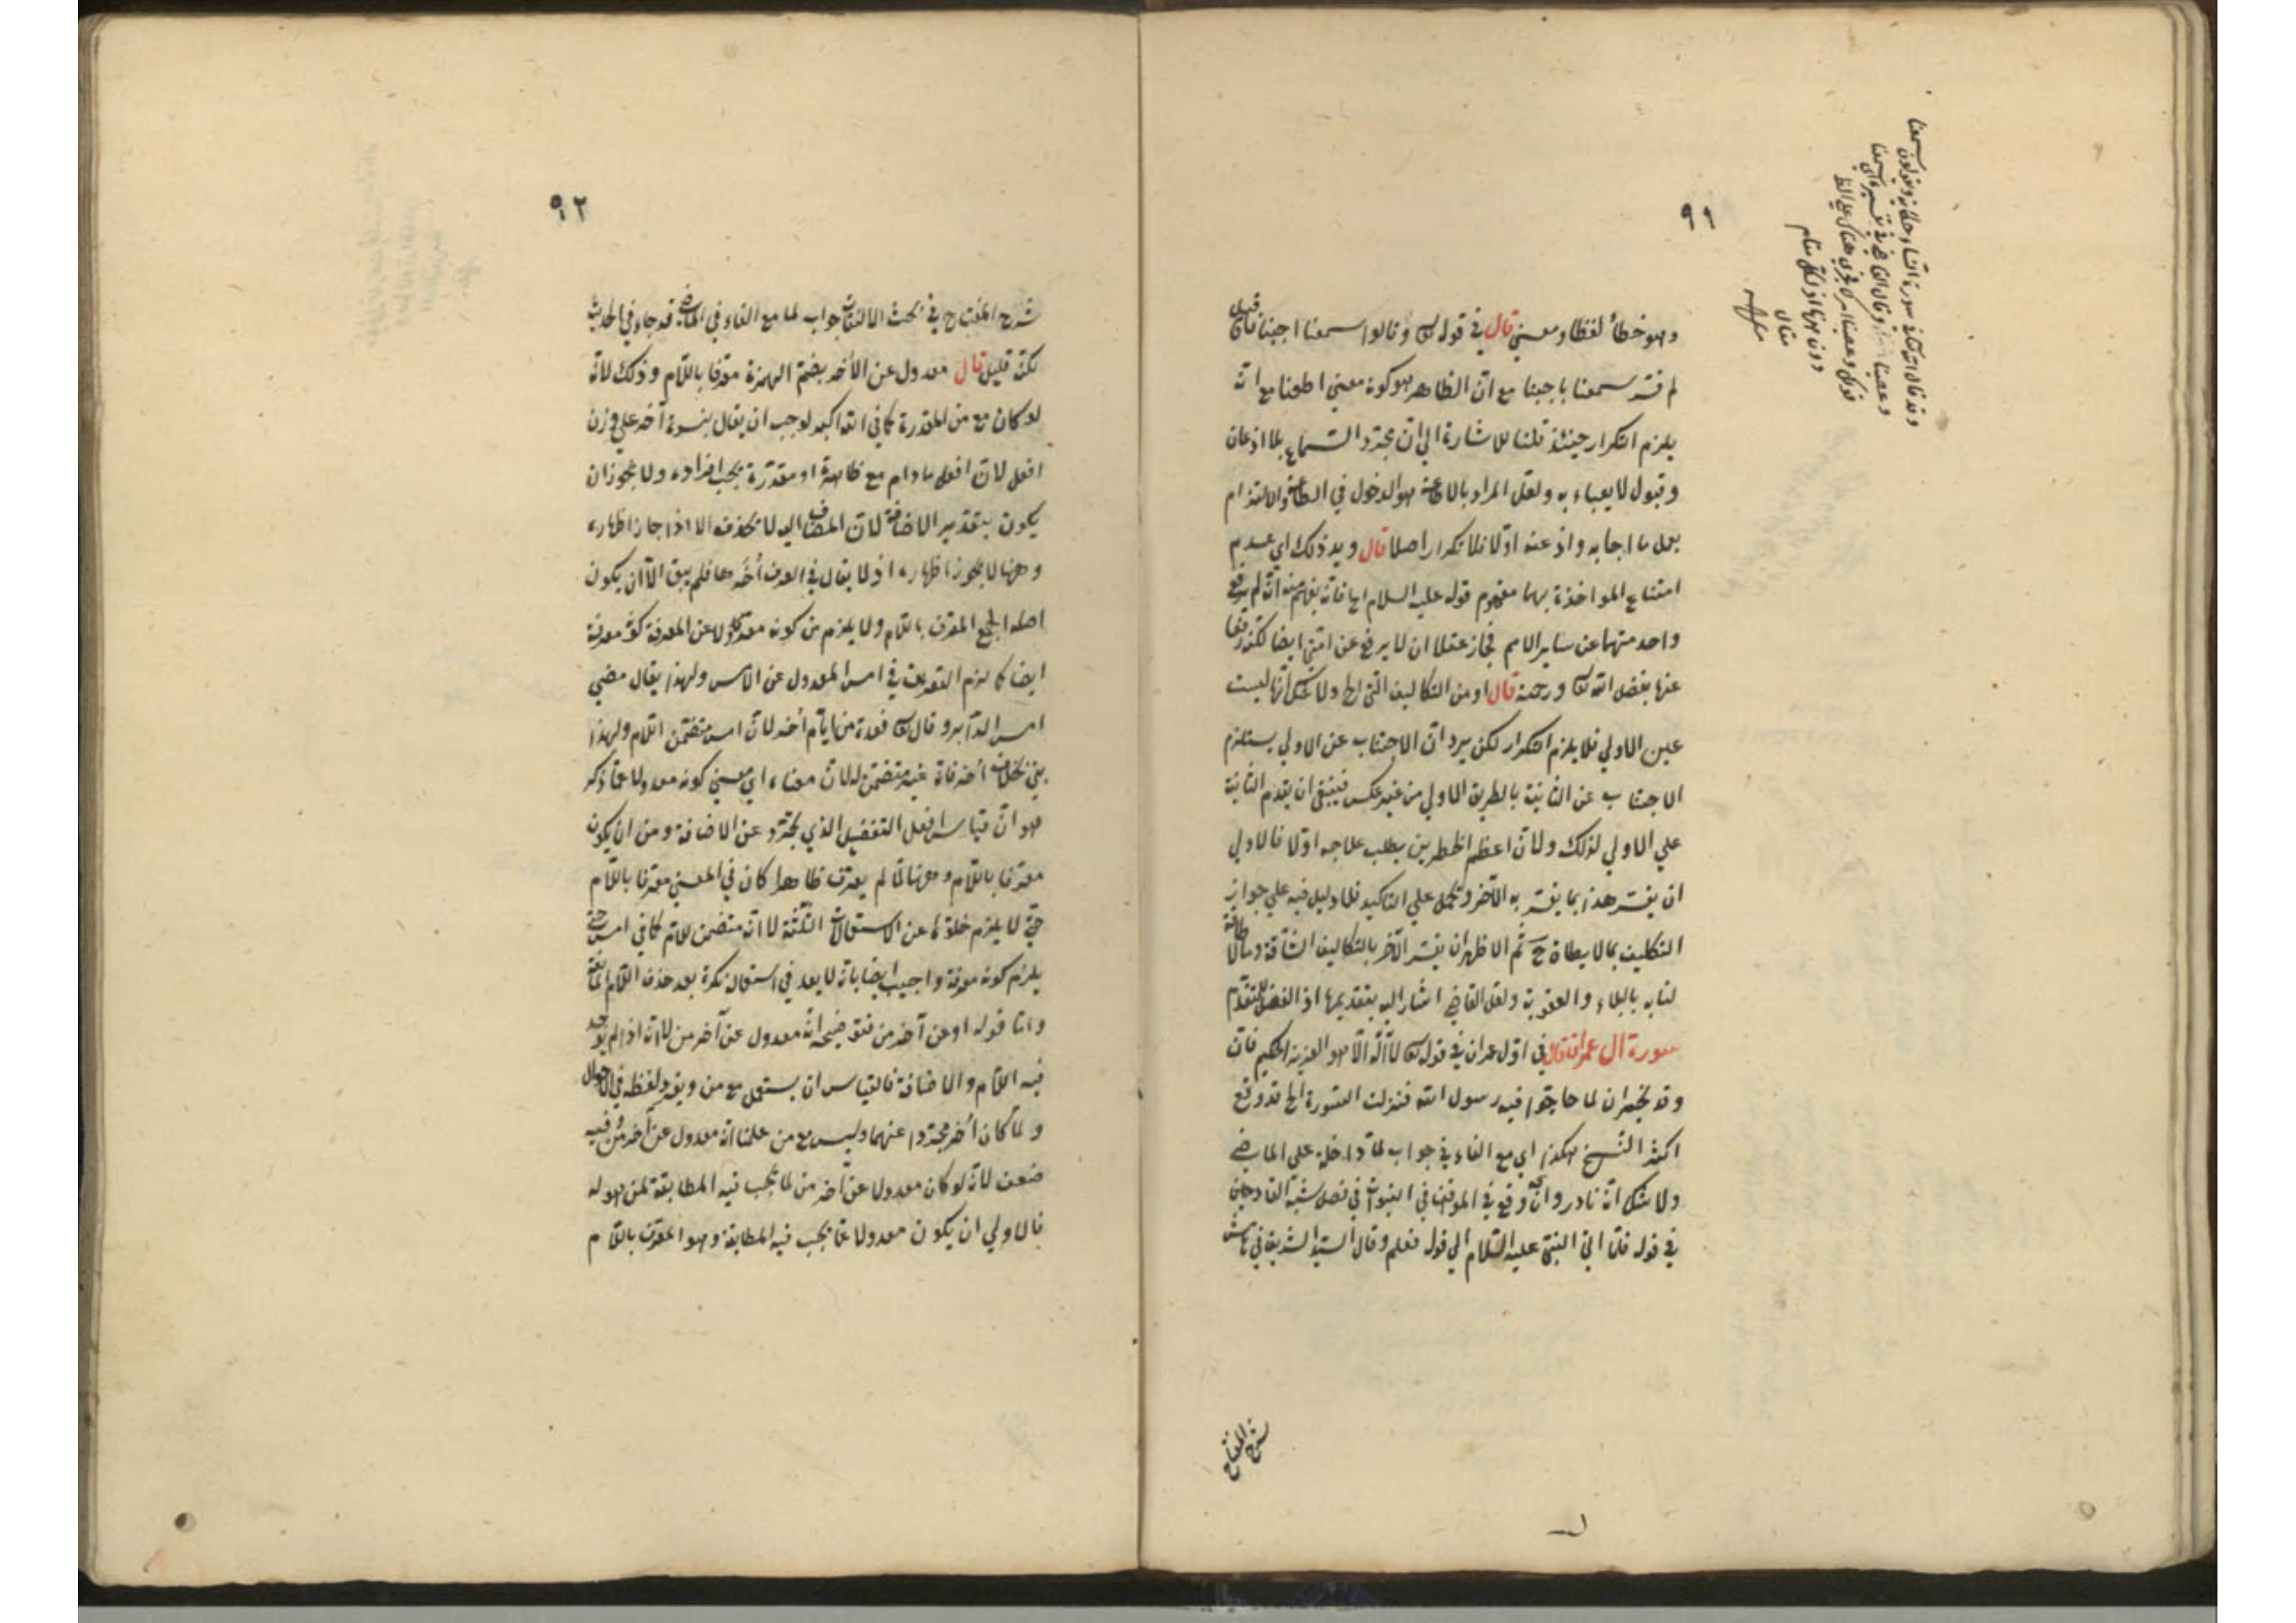 ٩١
وهو خطأ لفظا ومعني قال في قوله تعا وقالوا سمعنا اجبنا فان قيل
لم فسر سمعنا باجبنا مع ان الظاهر هو كونه معني اطعنا مع انه
يلزم التكرار حينئذ قلنا للاشارة الي ان مجرد السماع بلا اذعان
وقبول لا يعباء به ولعل المراد بالاطاعة هو الدخول في الطاعة والالتزام
بعمل ما اجابه واذعنه اولا فلا تكرار اصلا قال ويد ذلك اي عدم
امتناع المواخذة بهما مفهوم قوله عليه السلام الخ فانه يفهم منه انه لم يرفع
واحد منهما عن ساير الامم فجاز عقلا ان لا يرفع عن امتي ايضا لكنه رفعا
عنها بفضل الله تعا ورحمته قال او من التكاليف التي الخ ولا شك انها ليست
عين الاولي فلا يلزم التكرار لكن يرد ان الاجتناب عن الاولي يستلزم
الاجتناب عن الثانية بالطريق الاولي من غير عكس فينبغي ان يقدم الثانية
علي الاولي لذلك ولان اعظم الخطرين يطلب علاجه اولا فالاولي
ان يفسر هذا بما يفسر به الآخر وتحمل علي التاكيد فلا دليل فيه علي جواز
التكليف بمالا يطاق ح ثم الاظهر ان يفسر الآخر بالتكاليف الشاقة وما لا طاقة
لنا به بالبلاء والعقوبة ولعل القاضي اشار اليه بتقديمها اذ الفضل للمتقدم
سورة ال عمران قال في اول عمران في قوله تعا لا اله الا هو العزيز الحكيم فان
وقد نجران لما حاجوا فيه رسول الله فنزلت السورة الخ قد وقع
اكثر النسخ هكذا اي مع الفاء في جواب لما داخلة علي الماضي
ولا شك انه نادر وانه وقع في المواقف في النبوات في فصل شبه القادحين
في قوله فلما اتي النبي عليه السلام الي قوله فعلم وقال السيد الشريف في
شرح المفتاح
وقد قال الله تعا في سورة النساء حكاية ويقولون سمعنا
وعصينا وقال القاضي في تفسيره اي سمعنا
قولك وعصينا امرك
دون ههنا اذ لكل مقام
مقال
منه
٩٢
شرح المفتاح في بحث الالتفات جواب لما مع الفاء في الماضي قد جاء في الحديث
لكنه قليل قال معدول عن الأخر بضم الهمزة معرفا باللام وذلك لانه
لو كان مع من المقدرة كما في الله اكبر لوجب ان يقال بنسوة آخر علي وزن
افعل لان افعل مادام مع ظاهرة او مقدرة يجب افراده ولا يجوز ان
يكون بتقدير الاضافة لان المضاف اليه لا يحذف الا اذا جاز اظهاره
وههنا لا يجوز اظهاره اذ لا يقال في العرف أخرها فلم يبق الا ان يكون
اصله الجمع المعرف باللام ولا يلزم من كونه معدولا عن المعرفة كونه معرفة
ايضا كما لزم التعريف في امس المعدول عن الامس ولهذا يقال مضي
امس الدآبر وقال تعا فعدة من ايام أخر لان امس متضمن اللام ولهذا
بني بخلاف أخر فانه غير متضمن له لان معناه اي معني كونه معدولا عما ذكر
هو ان قياس افعل التفضيل الذي يجرد عن الاضافة ومن ان يكون
معرفا باللام وههنا لما لم يعرف ظاهرا كان في المعني معرفا باللام
حتي لا يلزم خلوه عن الاستعمالات الثلثة لا انه متضمن للام كما في امس حتي
يلزم كونه معرفة واجيب ايضا بانه لا يعد في استعماله نكرة بعد حذف اللام
واما قوله او عن آخر من فتوضيحه انه معدول عن آخر من لانه اذا لم يوجد
فيه اللام والاضافة فالقياس ان يستعمل مع من ويفرد لفظه في الاحوال
ولما كان أخر مجردا عنهما وليس مع من علمنا انه معدول عن آخر من وفيه
ضعف لانه لو كان معدولا عن آخر من لما يجب فيه المطابقة لمن هو له
فالاولي ان يكون معدولا عما يجب فيه المطابقة وهو المعرف باللام